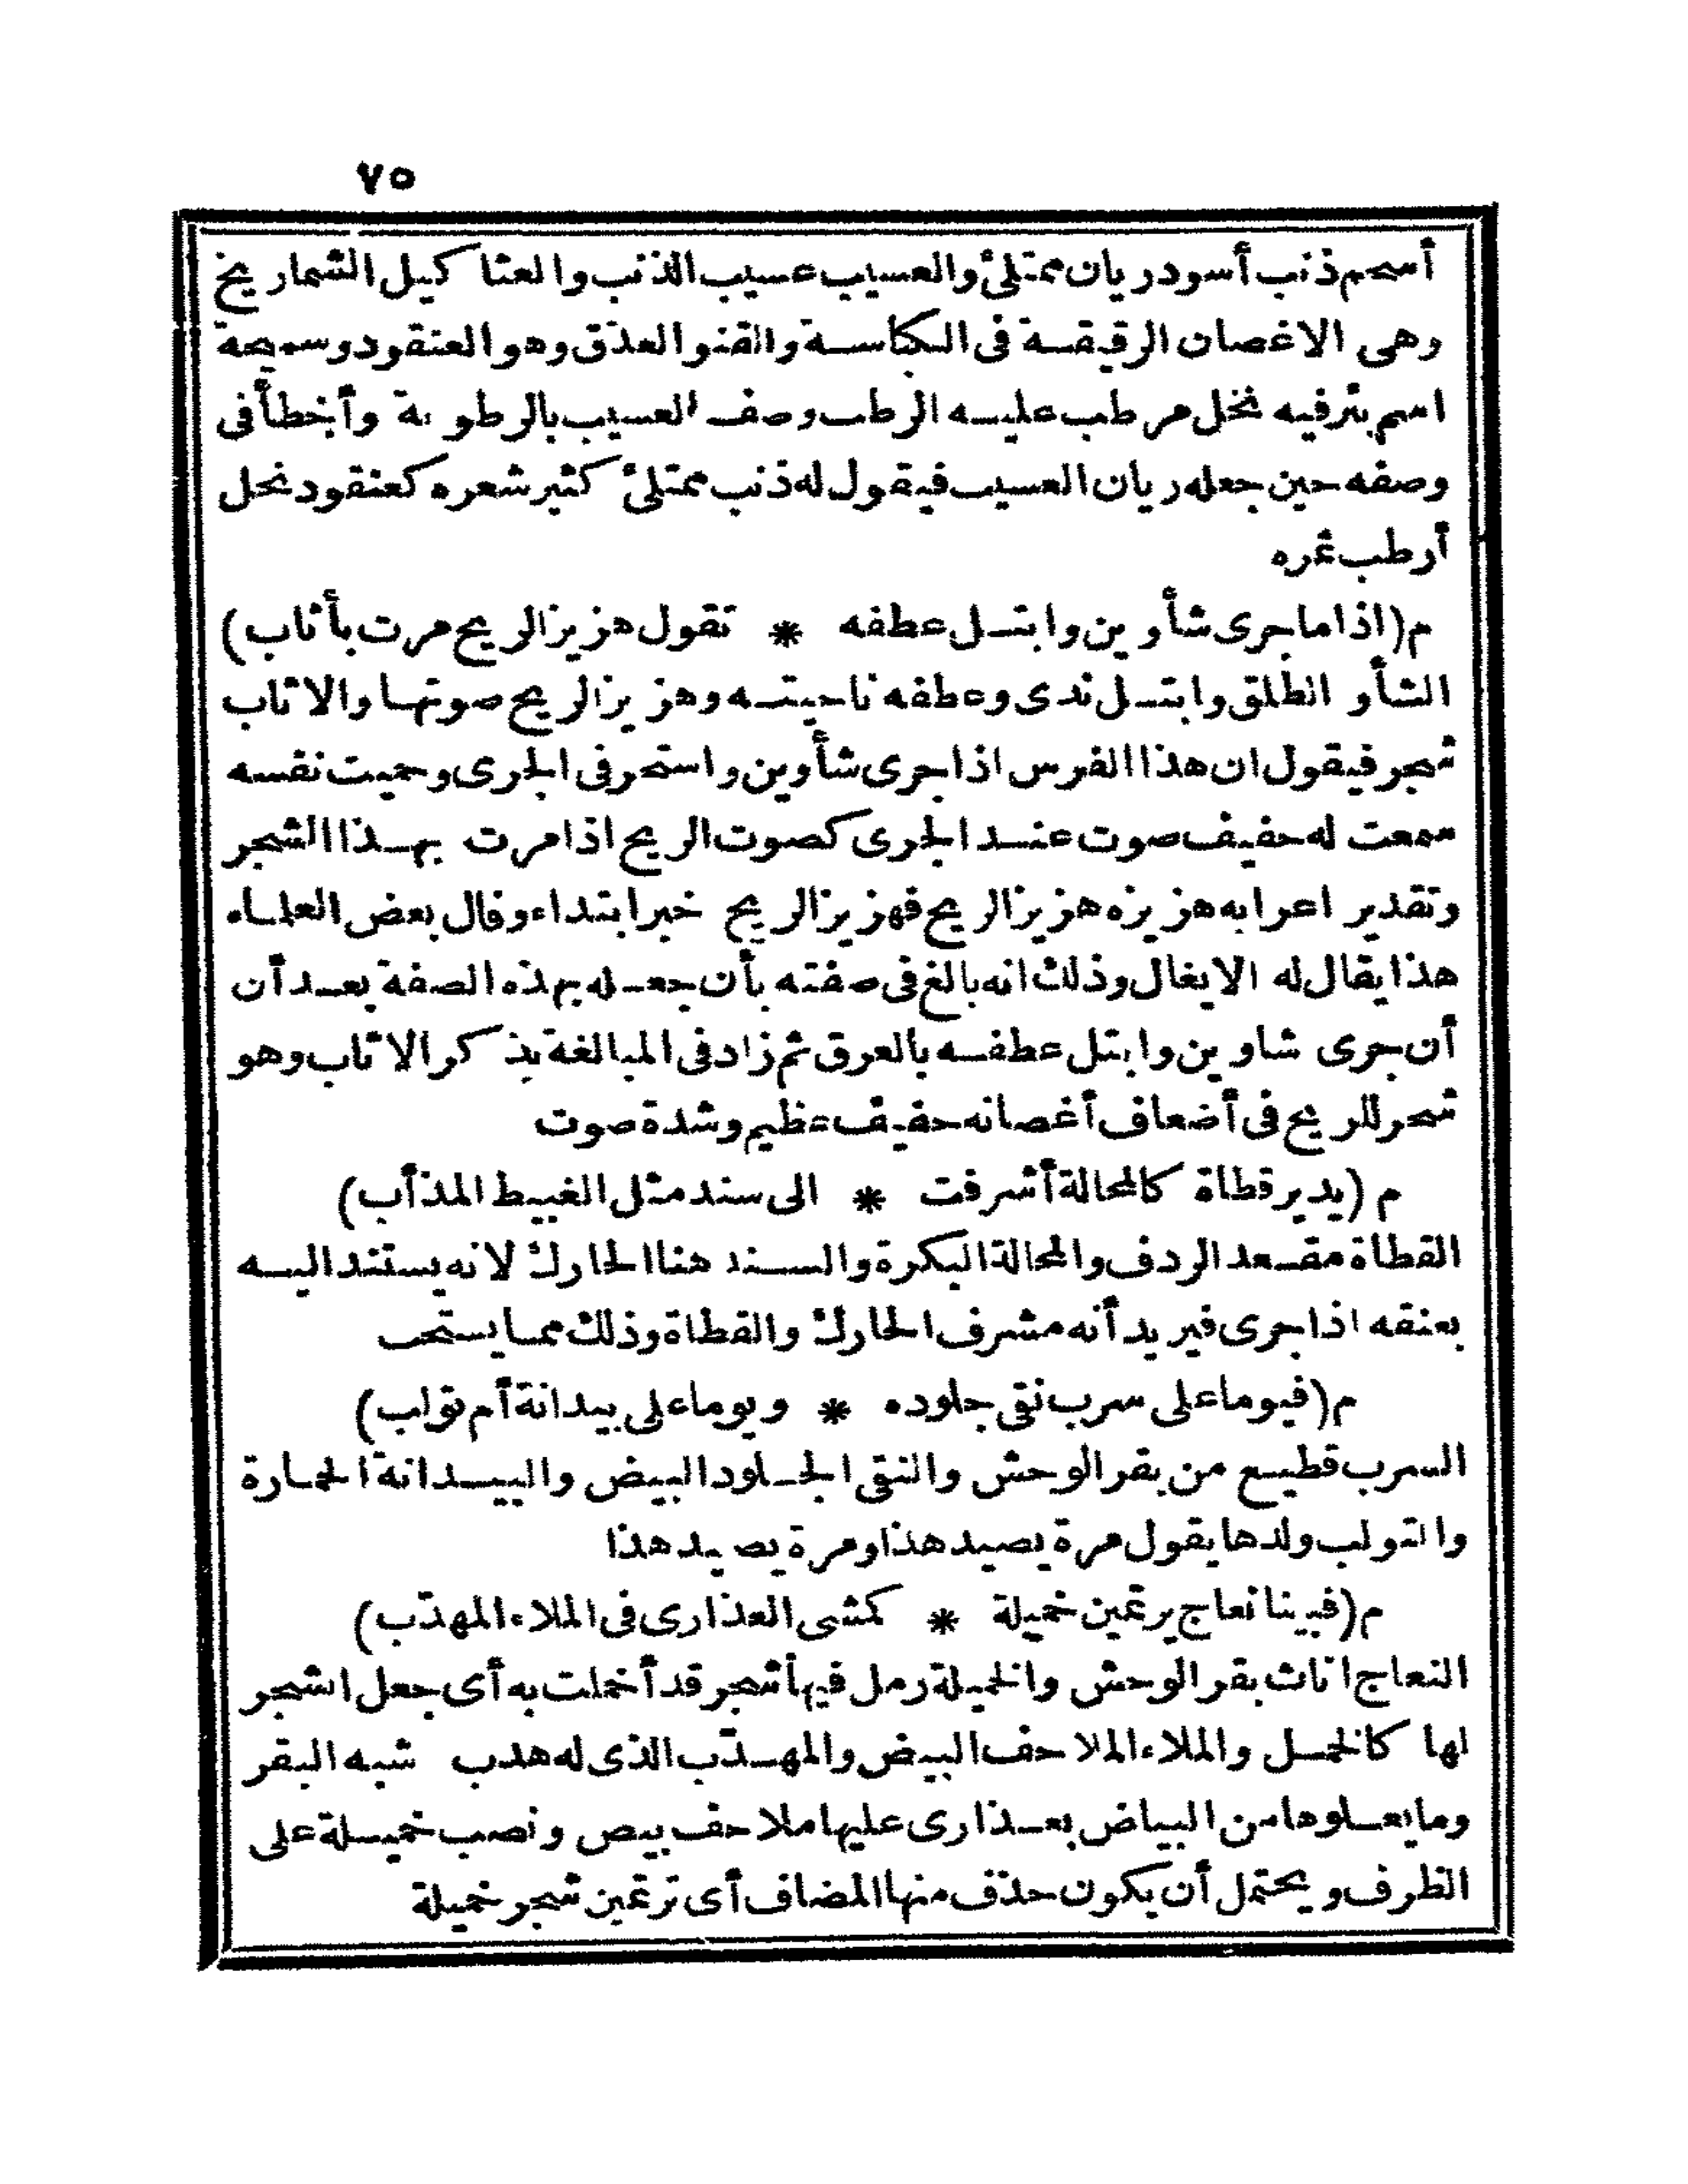 ٧٥
أسحم ذنب أسود ريان ممتلئ والعسيب عسيب الذنب والعثاكيل الشماريخ
وهى الاغصان الرقيقة فى الكباسة والقنو العذق وهو العنقود وسميحة
اسم بئر فيه نخل مرطب عليه الرطب وصف العسيب بالرطوبة وأخطأ فى
وصفه حين جعله ريان العسيب فيقول له ذنب ممتلئ كثير شعره كعنقود نخل
أرطب ثمره
م (اذا ما جرى شأوين وابتل عطفه * تقول هزيز الريح مرت بأثاب)
الشأو الطلق وابتل ندى وعطفه ناحيته وهزيز الريح صوتها والاثاب
شجر فيقول ان هذا الفرس اذا جرى شأوين واستحر فى الجرى وحميت نفسه
سمعت له حفيف صوت عند الجرى كصوت الريح اذا مرت بهذا الشجر
وتقدير اعرابه هزيزه هزيز الريح فهزيز الريح خبر ابتداء وقال بعض العلماء
هذا يقال له الايغال وذلك انه بالغ فى صفته بأن جعله بهذه الصفة بعد أن
أن جرى شاوين وابتل عطفه بالعرق ثم زاد فى المبالغة بذكر الاثاب وهو
شجر للريح فى أضعاف أغصانه حفيف عظيم وشدة صوت
م (يدير قطاة كالمحالة أشرفت * الى سند مثل الغبيط المذأب)
القطاة مقعد الردف والمحالة البكرة والسند هنا الحارك لانه يستند اليه
بعنقه اذا جرى فيريد أنه مشرف الحارك والقطاة وذلك مما يستحب
م (فيوما على سرب نقى جلوده * ويوما على بيدانة أم تولب)
السرب قطيع من بقر الوحش والنقى الجلود البيض والبيدانة الحمارة
والتولب ولدها يقول مرة يصيد هذا ومرة يصيد هذا
م (فبينا نعاج يرتعين خميلة * كمشى العذارى فى الملاء المهدّب)
النعاج اناث بقر الوحش والخميلة رمل فيها شجر قد أخملت به أى جعل الشجر
لها كالخمل والملاء الملاحف البيض والمهدّب الذى له هدب شبه البقر
وما يعلوها من البياض بعذارى عليها ملاحف بيض ونصب خميلة على
الظرف ويحتمل أن يكون حذف منها المضاف أى ترتعين شجر خميلة